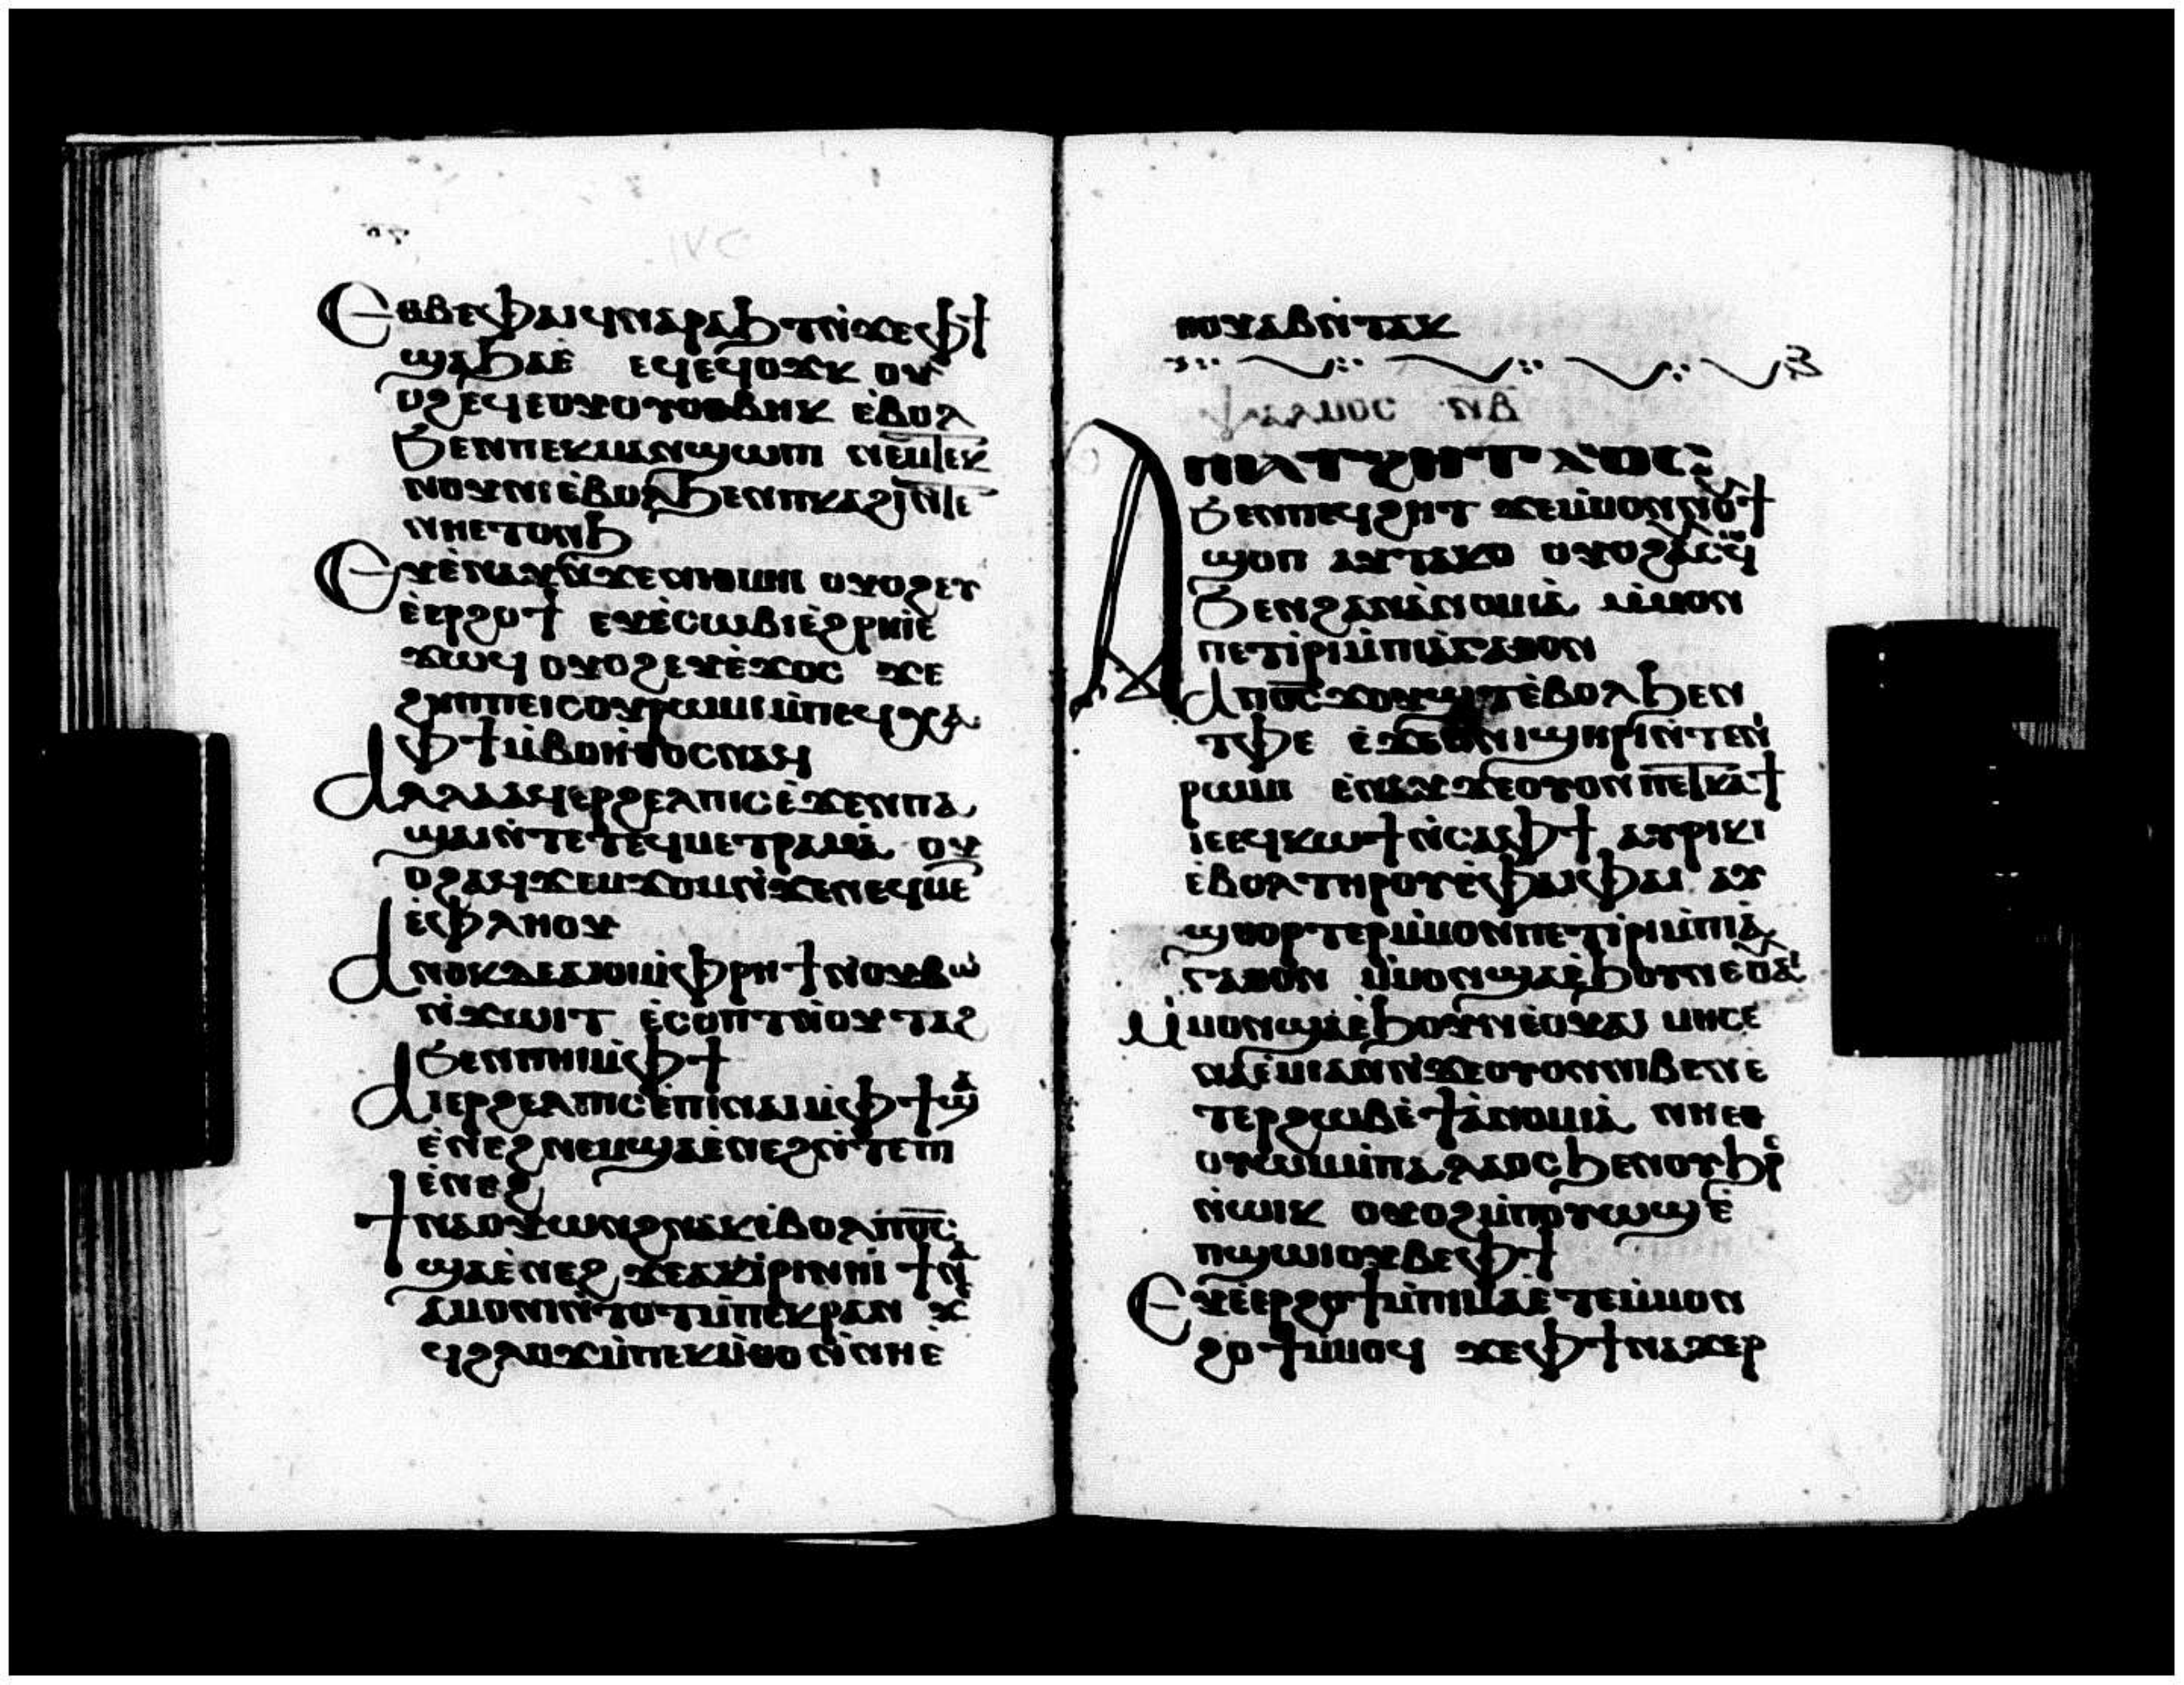 Ⲉⲑⲃⲉⲫⲁⲓϥⲛⲁⲣⲁϧⲧⲛ̀ϫⲉⲫϯ
ϣⲁϧⲁⲉ̀ ⲉϥⲉϥⲟϫⲕ ⲟⲩ
ⲟϩⲉϥⲉⲟⲩⲟⲧⲟⲑⲃⲏⲕ ⲉ̀ⲃⲟⲗ
ϧⲉⲛⲡⲉⲕⲙⲁⲛϣⲱⲡⲓ ⲛⲉⲙⲧⲉⲕ
ⲛⲟⲩⲛⲓⲉ̀ⲃⲟⲗϧⲉⲛⲡⲕⲁϩⲓⲛⲧⲉ
ⲛⲏⲉⲧⲟⲛϧ
Ⲉⲩⲉ̀ⲛⲁⲩⲛ̀ϫⲉⲛⲓⲑⲙⲏⲓ ⲟⲩⲟϩⲉⲩ
ⲉ̀ⲉⲣϩⲟϯ ⲉⲩⲉ̀ⲥⲱⲃⲓⲉ̀ϩⲣⲏⲓⲉ̀
ϫⲱϥ ⲟⲩⲟϩⲉⲩⲉ̀ϫⲟⲥ ϫⲉ
ϩⲏⲡⲡⲉⲓⲥⲟⲩⲣⲱⲙⲓⲙ̀ⲡⲉϥⲭⲁ
ⲫϯⲙ̀ⲃⲟⲏ̀ⲑⲟⲥⲛⲁϥ
Ⲁⲗⲗⲁⲁϥⲉⲣϩⲉⲗⲡⲓⲥⲉ̀ϫⲉⲛⲡⲁ
ϣⲁⲓⲛ̀ⲧⲉⲧⲉϥⲙⲉⲧⲣⲁⲙⲁ̀ ⲟⲩ
ⲟϩⲁϥϫⲉⲙϫⲟⲙⲛ̀ϫⲉⲛⲉϥⲙⲉ
ⲉ̀ⲫⲗⲏⲟⲩ
Ⲁⲛⲟⲕⲇⲉⲁⲓⲟⲓⲙ̀ⲫⲣⲏϯⲛ̀ⲟⲩⲃⲱ
ⲛ̀ϫⲱⲓⲧ ⲉ̀ⲥⲟⲡⲧⲛ̀ⲟⲩⲧⲁϩ
ϧⲉⲛⲡⲏⲓⲙ̀ⲫϯ
Ⲁⲓⲉⲣϩⲉⲗⲡⲓⲥⲉ̀ⲡⲓⲛⲁⲓⲙ̀ⲫϯϣⲁ
ⲉ̀ⲛⲉϩⲛⲉⲙϣⲁⲉ̀ⲛⲉϩⲛ̀ⲧⲉⲡⲓ
ⲉ̀ⲛⲉϩ
Ϯⲛⲁⲟⲩⲱⲛϩⲛⲁⲕⲉ̀ⲃⲟⲗⲡⲟ̅ⲥ̅
ϣⲁⲉ̀ⲛⲉϩ ϫⲉⲁⲕⲓⲣⲓⲛⲏⲓ ϯⲛⲁ
ⲁⲙⲟⲛⲓⲛ̀ⲧⲟⲧⲙ̀ⲡⲉⲕⲣⲁⲛ ϫⲉ
ϥϩⲗⲟϫⲙ̀ⲡⲉⲕⲙ̀ⲑⲟ ⲛ̀ⲛⲏⲉ̀
ⲑⲟⲩⲁⲃⲛ̀ⲧⲁⲕ
ⲯⲁⲗⲙⲟⲥ ⲛ̅ⲃ̅
Ⲁⲡⲓⲁⲧϩⲏⲧϫⲟⲥ
ϧⲉⲛⲡⲉϥϩⲏⲧ ϫⲉⲙ̀ⲙⲟⲛⲛⲟⲩϯ
ϣⲟⲡ ⲁⲩⲧⲁⲕⲟ ⲟⲩⲟϩⲁⲩⲥⲱϥ
ϧⲉⲛϩⲁⲛⲁ̀ⲛⲟⲙⲓⲁ̀ ⲙ̀ⲙⲟⲛ
ⲡⲉⲧⲓⲣⲓⲙ̀ⲡⲓⲁ̀ⲅⲁⲑⲟⲛ
Ⲁⲡⲟ̅ⲥ̅ϫⲟⲩϣⲧⲉ̀ⲃⲟⲗϧⲉⲛ
ⲧⲫⲉ ⲉ̀ϫⲉⲛⲛⲓϣⲏⲣⲓⲛ̀ⲧⲉⲛⲓ
ⲣⲱⲙⲓ ⲉ̀ⲛⲁⲩϫⲉⲟⲩⲟⲛⲡⲉⲧⲕⲁϯ
ⲓⲉⲉϥⲕⲱϯⲛ̀ⲥⲁⲫϯ ⲁⲩⲣⲓⲕⲓ
ⲉ̀ⲃⲟⲗⲧⲏⲣⲟⲩⲉ̀ⲫⲁⲓⲫⲁⲓ ⲁⲩ
ϣⲑⲟⲣⲧⲉⲣⲙ̀ⲙⲟⲛⲡⲉⲧⲓⲣⲓⲙ̀ⲡⲓⲁ̀
ⲅⲁⲑⲟⲛ ⲙ̀ⲙⲟⲛϣⲁⲉ̀ϧⲟⲩⲛⲉⲟⲩⲁⲓ
Ⲙ̀ⲙⲟⲛϣⲁⲉ̀ϧⲟⲩⲛⲉ̀ⲟⲩⲁⲓ ⲙⲏⲥⲉ
ⲛⲁⲉ̀ⲙⲓⲁⲛⲛ̀ϫⲉⲟⲩⲟⲛⲛⲓⲃⲉⲛⲉ
ⲧⲉⲣϩⲱⲃⲉ̀ϯⲁ̀ⲛⲟⲙⲓⲁ̀ ⲛⲏⲉⲑ
ⲟⲩⲱⲙⲙ̀ⲡⲁⲗⲁⲟⲥϧⲉⲛⲟⲩϧⲣⲉ
ⲛ̀ⲱⲓⲕ ⲟⲩⲟϩⲙ̀ⲡⲟⲩⲱϣⲉ̀
ⲡϣⲱⲓⲟⲩⲃⲉⲫϯ
Ⲉⲩⲉ̀ⲉⲣϩⲟϯⲙ̀ⲡⲓⲙⲁⲉ̀ⲧⲉⲙ̀ⲙⲟⲛ
ϩⲟϯⲙ̀ⲙⲟϥ ϫⲉⲫϯⲛⲁϫⲉⲣ